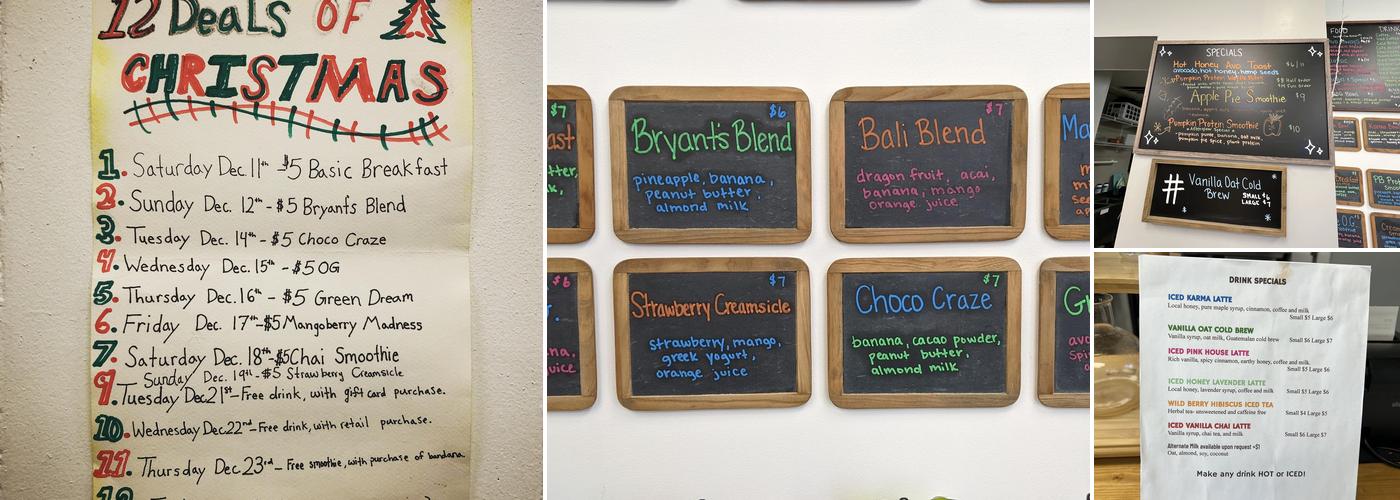 12 Deals OF
CHRISTMAS
1. Saturday Dec. 11th - $5 Basic Breakfast
2. Sunday Dec. 12th - $5 Bryant's Blend
3. Tuesday Dec. 14th - $5 Choco Craze
4. Wednesday Dec. 15th - $5 OG
5. Thursday Dec. 16th - $5 Green Dream
6. Friday Dec. 17th - $5 Mangoberry Madness
7. Saturday Dec. 18th - $5 Chai Smoothie
Sunday Dec. 19th - $5 Strawberry Creamsicle
9. Tuesday Dec 21st - Free drink, with gift card purchase.
10. Wednesday Dec 22nd - Free drink, with retail purchase.
11. Thursday Dec 23rd - Free smoothie, with purchase of bandana
12
$7
$6
Bryant's Blend
pineapple, banana,
peanut butter,
almond milk
$7
Bali Blend
dragon fruit, acai,
banana, mango
orange juice
$6
$7
Strawberry Creamsicle
strawberry, mango,
greek yogurt,
orange juice
$7
Choco Craze
banana, cacao powder,
peanut butter,
almond milk
SPECIALS
Hot Honey Avo Toast $6/11
avocado, hot honey, hemp seeds
Pumpkin Protein
Apple Pie Smoothie $9
Pumpkin Protein Smoothie $10
pumpkin puree, banana, oat milk
pumpkin pie spice, plant protein
# Vanilla Oat Cold
Brew
SMALL $6
LARGE $7
FOOD
DRINK
DRINK SPECIALS
ICED KARMA LATTE
Local honey, pure maple syrup, cinnamon, coffee and milk
Small $5 Large $6
VANILLA OAT COLD BREW
Vanilla syrup, oat milk, Guatemalan cold brew Small $6 Large $7
ICED PINK HOUSE LATTE
Rich vanilla, spicy cinnamon, earthy honey, coffee and milk.
Small $5 Large $6
ICED HONEY LAVENDER LATTE
Local honey, lavender syrup, coffee and milk Small $5 Large $6
WILD BERRY HIBISCUS ICED TEA
Herbal tea- unsweetened and caffeine free Small $4 Large $5
ICED VANILLA CHAI LATTE
Vanilla syrup, chai tea, and milk Small $6 Large $7
Alternate Milk available upon request +$1
Oat, almond, soy, coconut
Make any drink HOT or ICED!